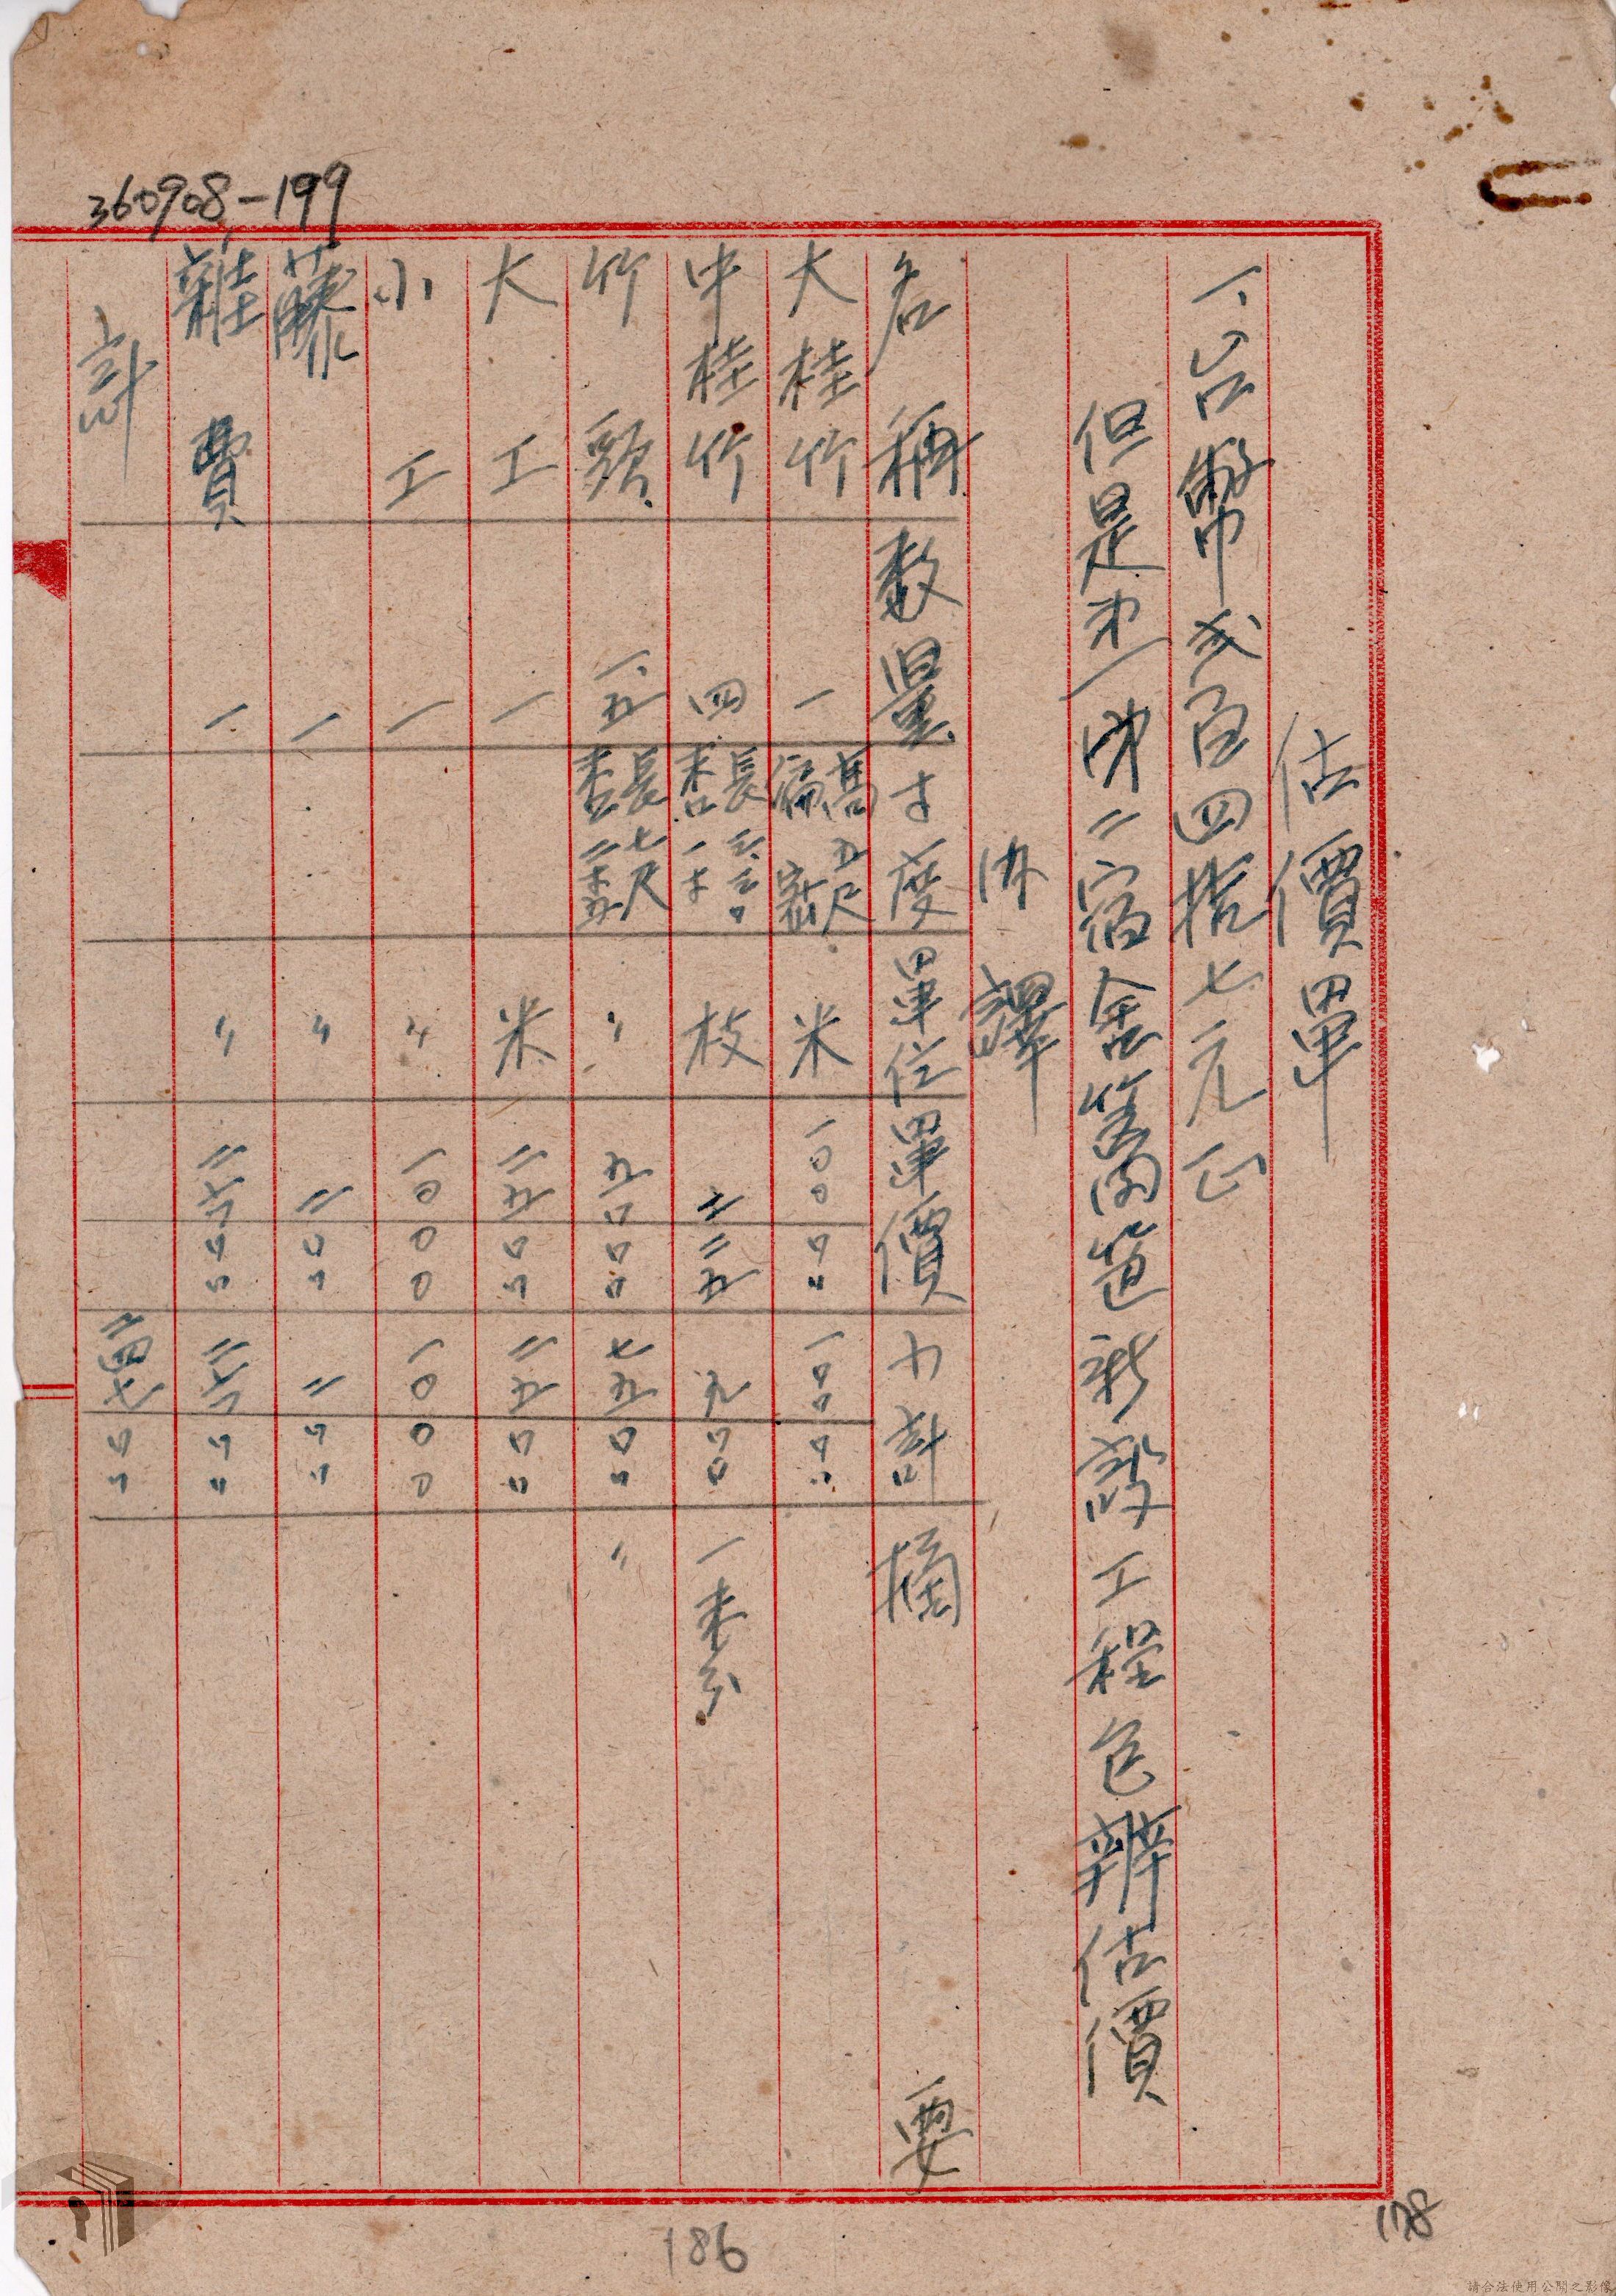 360908-199
估價單
一、台幣弍百四拾七元正
但是第一第二宿舍篱笆新設工程包辦估價
內譯
名稱 数量 寸度 單位 單價 小計 摘要
大桂竹 一 高五尺 米 一〇〇 〇〇 一〇〇 〇〇
中桂竹 四 長 枝 二 二五 九 〇〇 一米分
竹 一、五 長七尺 〃 五〇 〇〇 七五 〇〇 〃
大工 一 米 二五 〇〇 二五 〇〇
小工 一 〃 一〇 〇〇 一〇 〇〇
藤 一 〃 二 〇〇 二 〇〇
雜費 一 〃 二六 〇〇 二六 〇〇
計 二四七 〇〇
186
178
請合法使用公開之影像